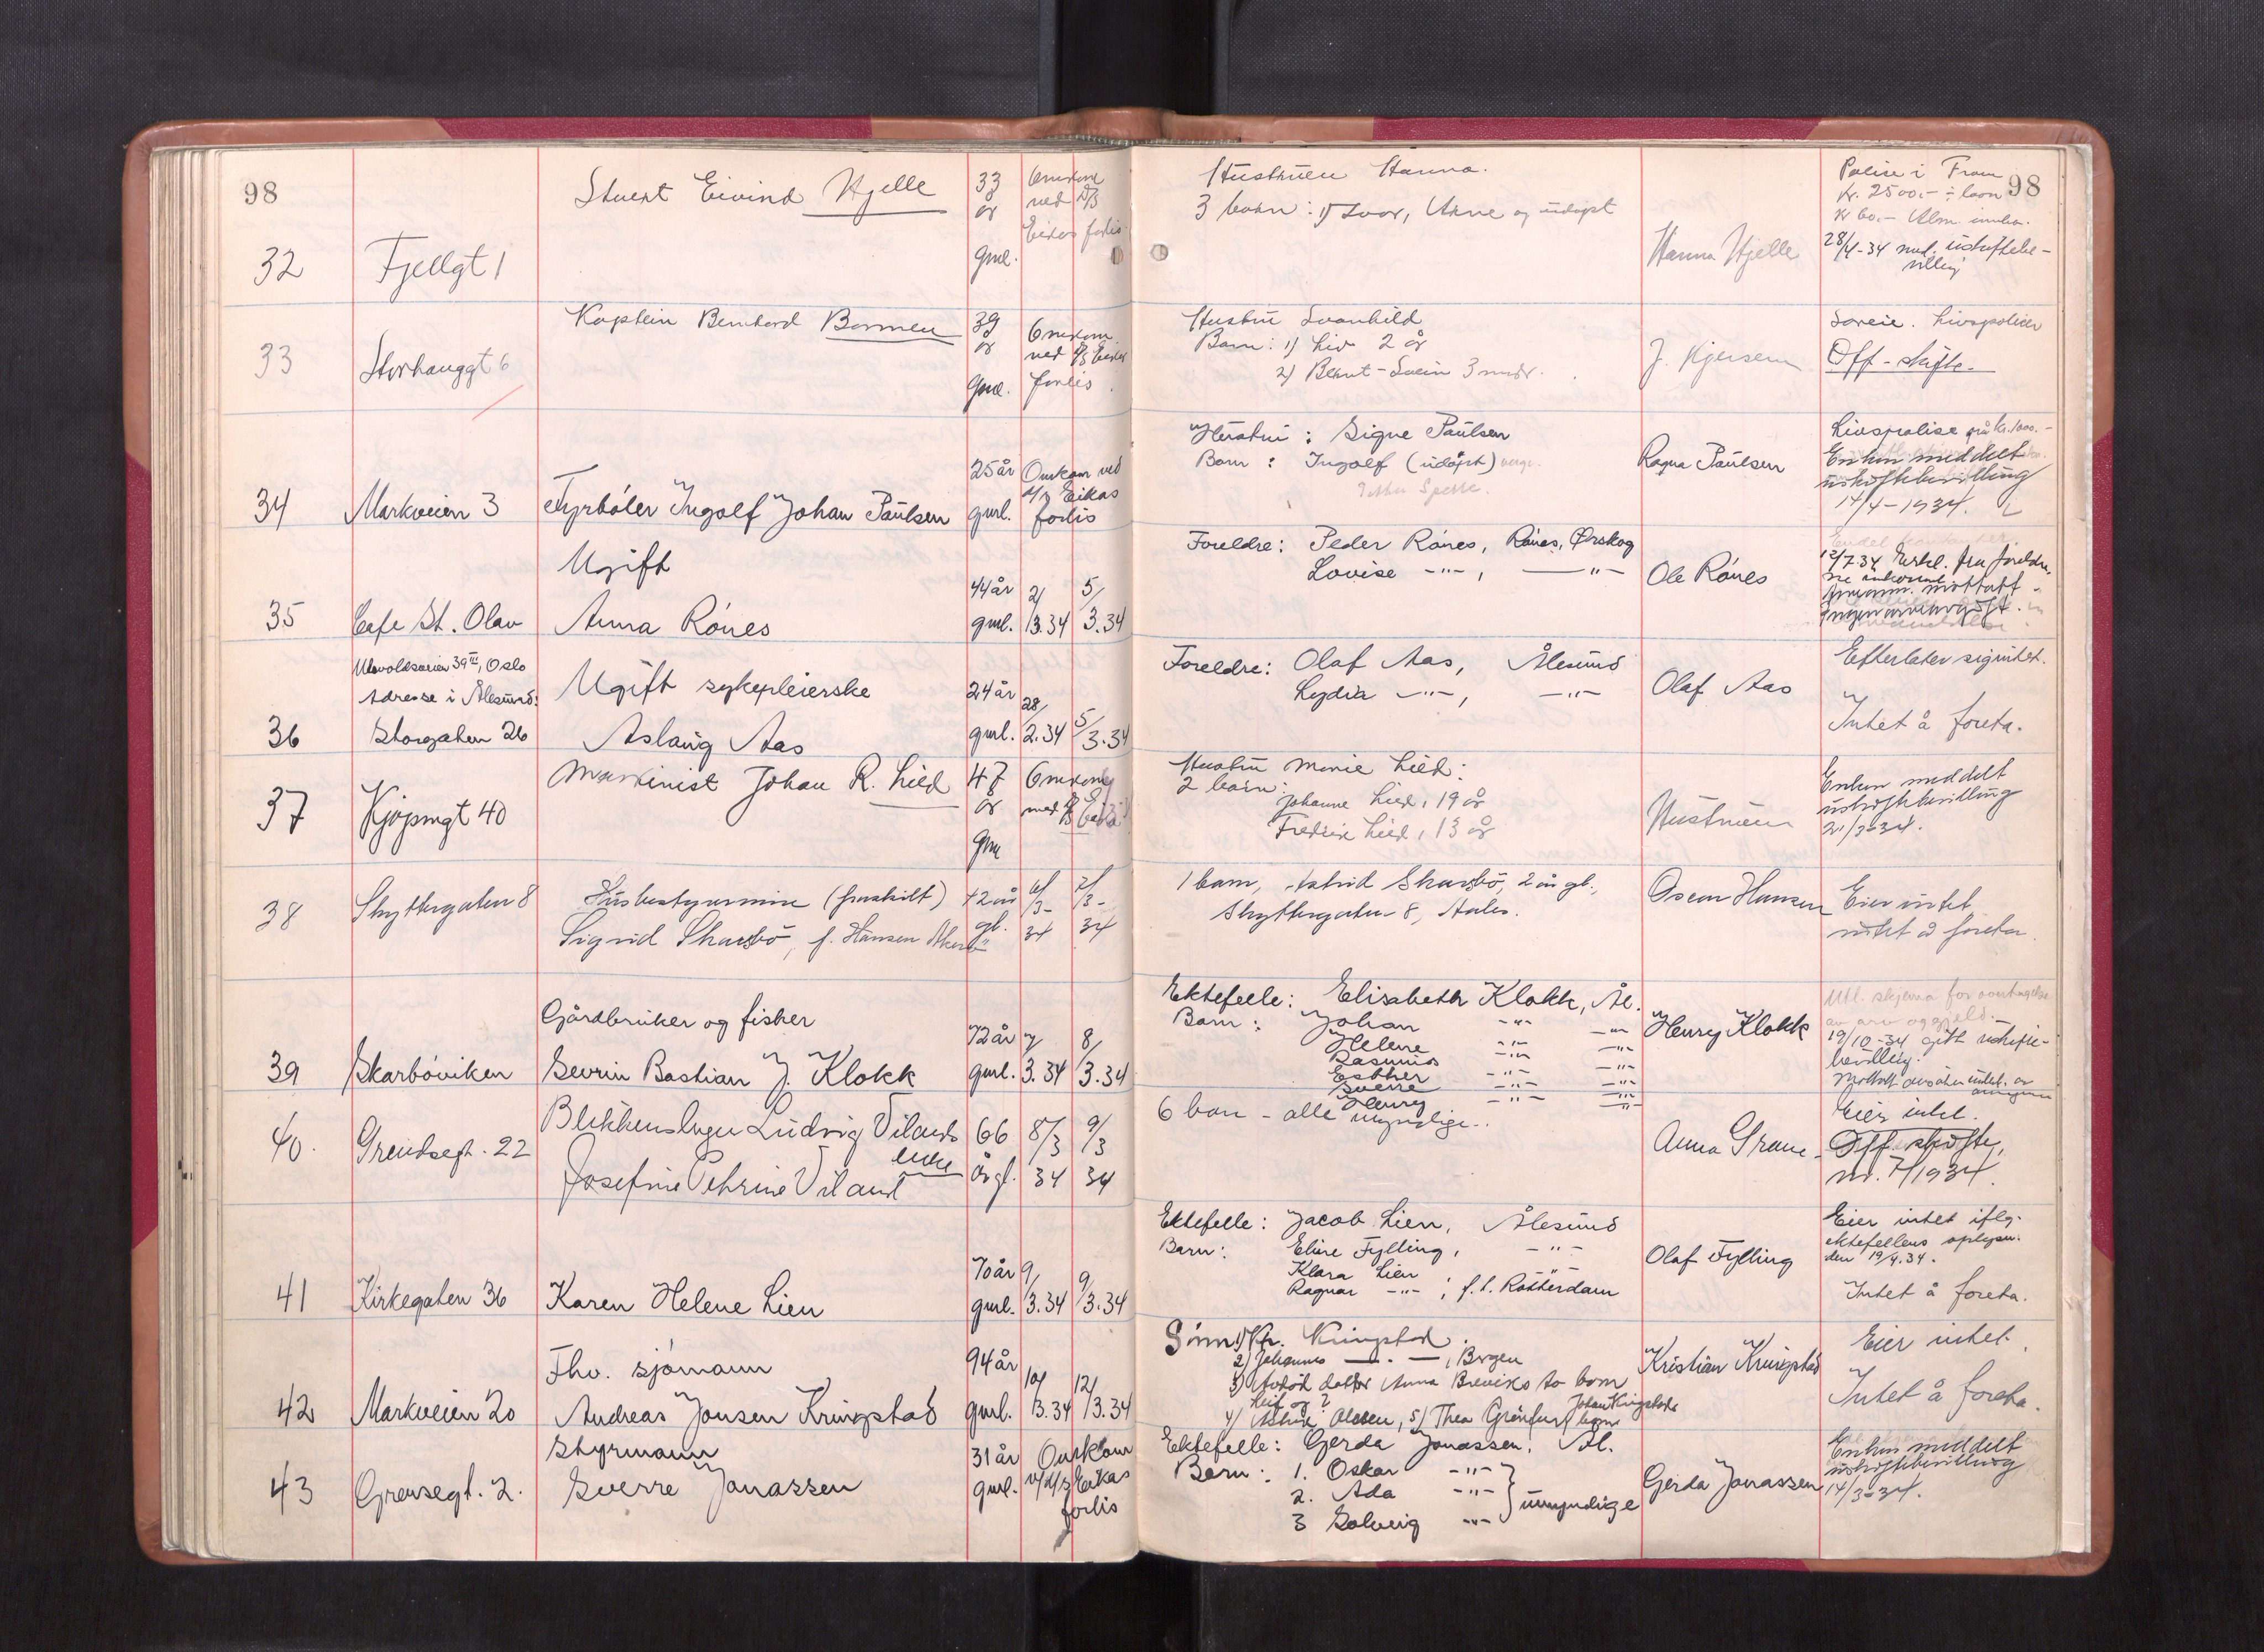 98
Stuert Eivind Hjelle
33 år gml.
Omkom ved D/S Eikas forlis
32
Fjellgt 1
Hustruen Hanna.
3 barn: 1) Ivar, Arne og udøpt
Hanna Hjelle
98
Polise i Fram
Kr. 2500.- ÷ laan
Kr 60.-
28/4-34 med. uskiftebe-
villing
33
Storhauggt 6
Kaptein Bernhard Bormen
39 år gml.
Omkom ved D/S Eikas forlis.
Hustru Svanhild
Barn: 1) Liv 2 år
2) Bernt-Svein 3 mndr.
J. Kjersem
Livspoliser
Off-skifte.
34
Markveien 3
Fyrbøter Ingolf Johan Paulsen
25 år gml.
Omkom ved D/S Eikas forlis
Hustru: Signe Paulsen
Barn: Ingolf (udøpt)
Ragna Paulsen
Livspolise på kr. 1000.-
Enken meddelt
uskiftebevilling
14/4-1934.
35
Cafe St. Olav
Ugift
Anna Rønes
44 år gml.
2/3.34
5/3.34
Foreldre: Peder Rønes, Rønes, Ørskog
Lovise -"-, -"-
Ole Rønes
12/7.34 Erkl. fra foreldre-
ne
36
Ullevoldsveien 39 III, Oslo
Adresse i Ålesund:
Storgaten 26
Ugift sykepleierske
Aslaug Aas
24 år gml.
28/2.34
5/3.34
Foreldre: Olaf Aas, Ålesund
Lydia -"-, -"-
Olaf Aas
Efterlater sig intet.
Intet å foreta.
37
Kjøpmgt 40
Maskinist Johan R. Lied
47 år gml
Omkom med D/S Eikas
Hustru Marie Lied:
2 barn:
Johanne Lied, 19 år
Fredrik Lied, 13 år
Hustruen
Enken meddelt
uskiftebevilling
21/3-34.
38
Skyttergaten 8
Husbestyrerinne (fraskilt)
Sigrid Skarbø, f. Hansen
42 år gl.
6/3-34
7/3-34
1 barn, Astrid Skarbø, 2 år gl.,
Skyttergaten 8, Aales.
Oscar Hansen
Eier intet
intet å foreta.
39
Skarbøviken
Gårdbruker og fisker
Sevrin Bastian J. Klokk
72 år gml.
7/3.34
8/3.34
Ektefelle: Elisabeth Klokk, Ål.
Barn: Johan -"- -"-
Helene -"- -"-
Rasmus -"- -"-
Esther -"- -"-
Sverre -"- -"-
Henry -"- -"-
Henry Klokk
Utl. skjema for overtagelse
av arv og gjeld.
19/10-34 gitt uskifte-
bevilling.
40.
Grensegt. 22
Blikkenslager Ludvig Vilands enke
Josefine Petrine Viland
66 år gl.
8/3 34
9/3 34
6 barn - alle myndige.
Anna Grane
Eier intet.
Off. skifte,
nr. 7/1934.
41
Kirkegaten 36
Karen Helene Lien
70 år gml.
9/3.34
9/3.34
Ektefelle: Jacob Lien, Ålesund
Barn: Eline Fylling, -"-
Klara Lien -"-
Ragnar -"-, f. t. Rotterdam
Olaf Fylling
Eier intet iflg.
ektefellens oplysn.
den 19/4.34.
Intet å foreta.
42
Markveien 20
Fhv. sjømann
Andreas Jonsen Kringstad
94 år gml.
10/3.34
12/3.34
Sønn 1) Kr. Kringstad.
2) Johannes -"-, Bergen
3) Avdød datter Anna Breviks to barn
Leif og ?
4) Astrid Olsen, 5) Thea Grønfur,
Johan Kringstads
Kristian Kringstad
Eier intet.
Intet å foreta.
43
Grensegt. 2.
Styrmann
Sverre Jonassen
31 år gml.
Omkom v/ D/S Eikas forlis
Ektefelle: Gerda Jonassen, Ål.
Barn: 1. Oskar -"-
2. Ada -"-
3 Solveig -"-
umyndige
Gerda Jonassen
Enken meddelt
uskiftebevilling
14/3-34.